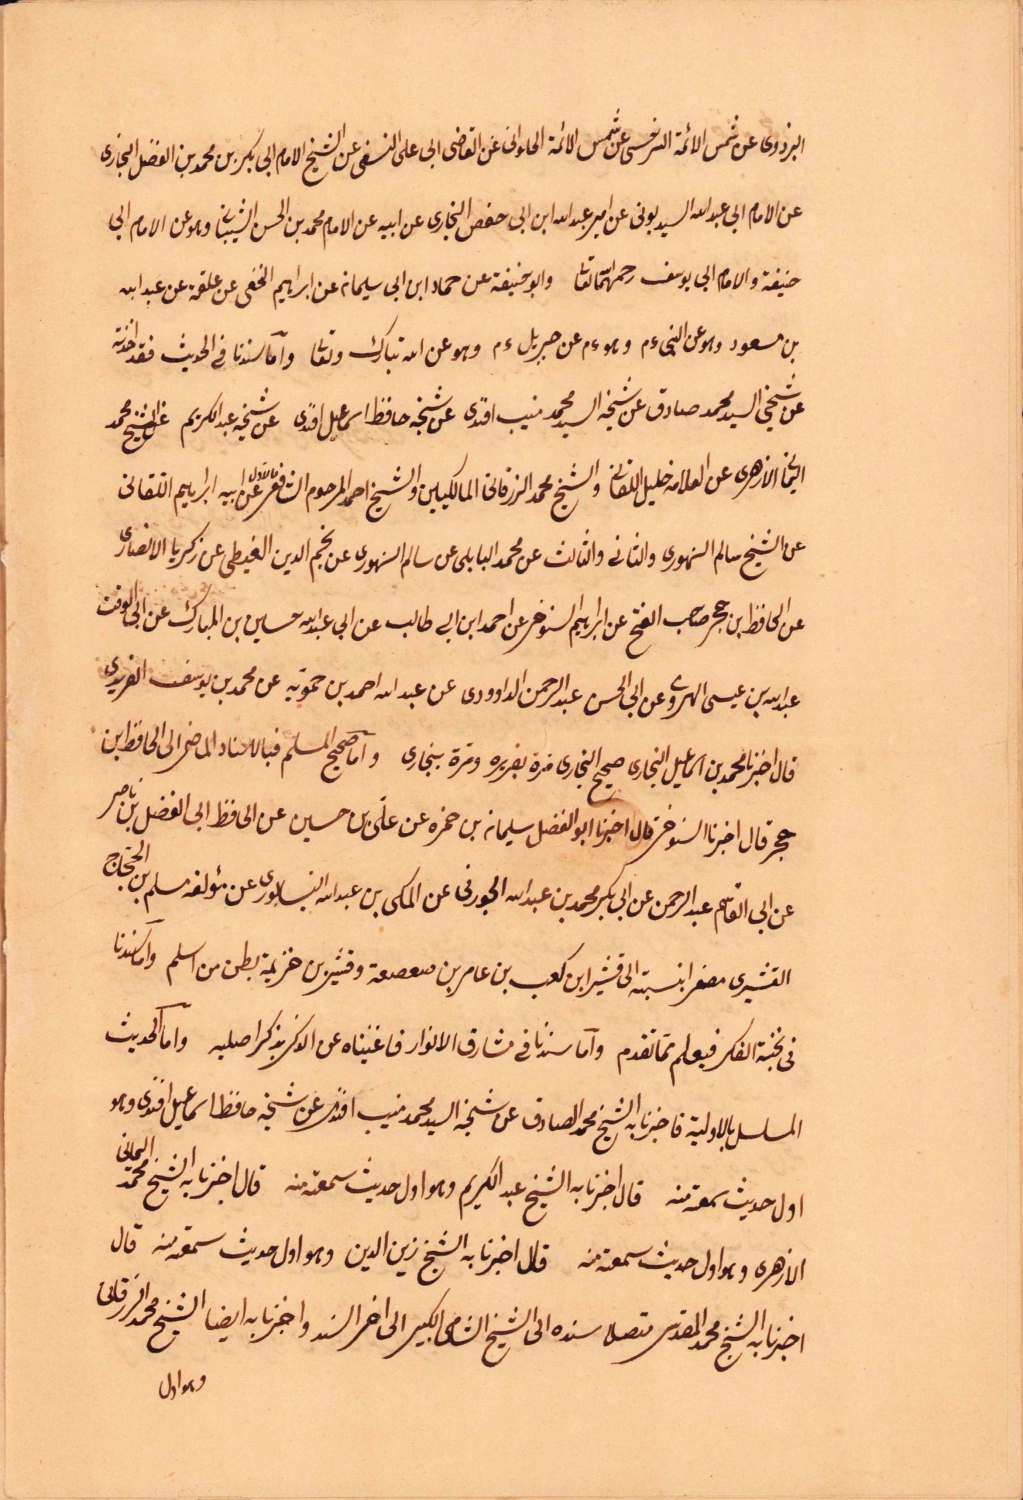 البزدوى عن شمس الائمة السرخسى عن شمس الائمة الحلوانى عن القاضى ابى على النسفى عن الشيخ الامام ابى بكر بن محمد بن الفضل البخارى
عن الامام ابى عبد الله السيد بونى عن امير عبد الله ابن ابى حفص البخارى عن ابيه عن الامام محمد بن الحسن الشيبانى وهو عن الامام ابى
حنيفة والامام ابى يوسف رحمهما الله تعالى وابو حنيفة عن حماد ابن ابى سليمان عن ابراهيم النخعى عن علقمة عن عبد الله
بن مسعود وهو عن النبى ءم وهو ءم عن جبريل ءم وهو عن الله تبارك وتعالى واما سندنا فى الحديث فقد اخذته
عن شيخى السيد محمد صادق عن شيخه السيد محمد منيب افندى عن شيخه حافظ اسماعيل افندى عن شيخه عبد الكريم عن الشيخ محمد
اليمانى الازهرى عن العلامة خليل اللقانى والشيخ محمد الزرقانى المالكيين والشيخ احمد المرحوم الشافعى فالاول عن ابيه ابراهيم اللقانى
عن الشيخ سالم السنهورى والثانى والثالث عن محمد البابلى عن سالم السنهورى عن نجم الدين الغيطى عن زكريا الانصارى
عن الحافظ بن حجر صاحب الفتح عن ابراهيم التنوخى عن احمد ابن ابى طالب عن ابى عبد الله حسين بن المبارك عن ابى الوقت
عبد الله بن عيسى الهروى عن ابى الحسن عبد الرحمن الداوودى عن عبد الله احمد بن حمويه عن محمد بن يوسف الفربرى
قال اخبرنا محمد بن اسماعيل البخارى صحيح البخارى مرة بفربره ومرة ببخارى واما صحيح المسلم فبالاسناد الماضى الى الحافظ ابن
حجر قال اخبرنا التنوخى قال اخبرنا ابو الفضل سليمان بن حمزه عن على بن حسين عن الحافظ ابى الفضل بن ناصر
عن ابى القاسم عبد الرحمن عن ابى بكر محمد بن عبد الله الجورنى عن المكى بن عبد الله النيسابورى عن مؤلفه مسلم بن الحجاج
القشيرى مصغرا نسبته الى قشير ابن كعب بن عامر بن صعصعة وقشير بن خزيمة بطن من اسلم واما سندنا
فى نخبة الفكر فيعلم مما تقدم واما سندنا فى مشارق الانوار فاغنيناه عن الذكر بذكر اصليه واما الحديث
المسلسل بالاولية فاخبرنا به الشيخ محمد الصادق عن شيخه السيد محمد منيب افندى عن شيخه حافظ اسماعيل افندى وهو
اول حديث سمعته منه قال اخبرنا به الشيخ عبد الكريم وهو اول حديث سمعته منه قال اخبرنا به الشيخ محمد اليمانى
الازهرى وهو اول حديث سمعته منه قال اخبرنا به الشيخ زين الدين وهو اول حديث سمعته منه قال
اخبرنا به الشيخ محمد المقدسى متصلا سنده الى الشيخ الشامى الكبير الى اخر السند واخبرنا به ايضا الشيخ محمد الزرقانى
وهو اول